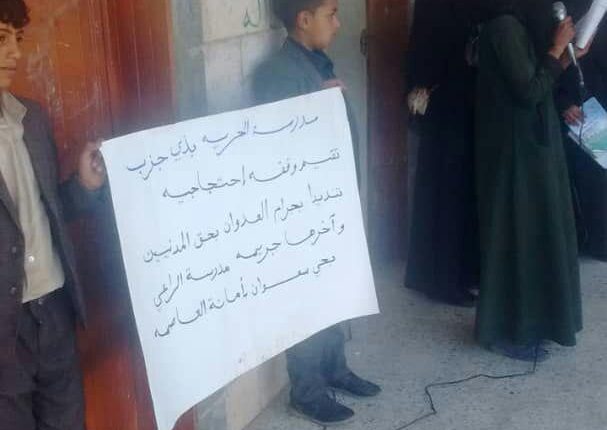 مدرسة الحريه بذي جزب
تقيم وقفه احتجاجيه
تنديدا بجرائم العدوان بحق المدنيين
وآخرها جريمه مدرسة الراعي
بحي سعوان بأمانة العاصمه